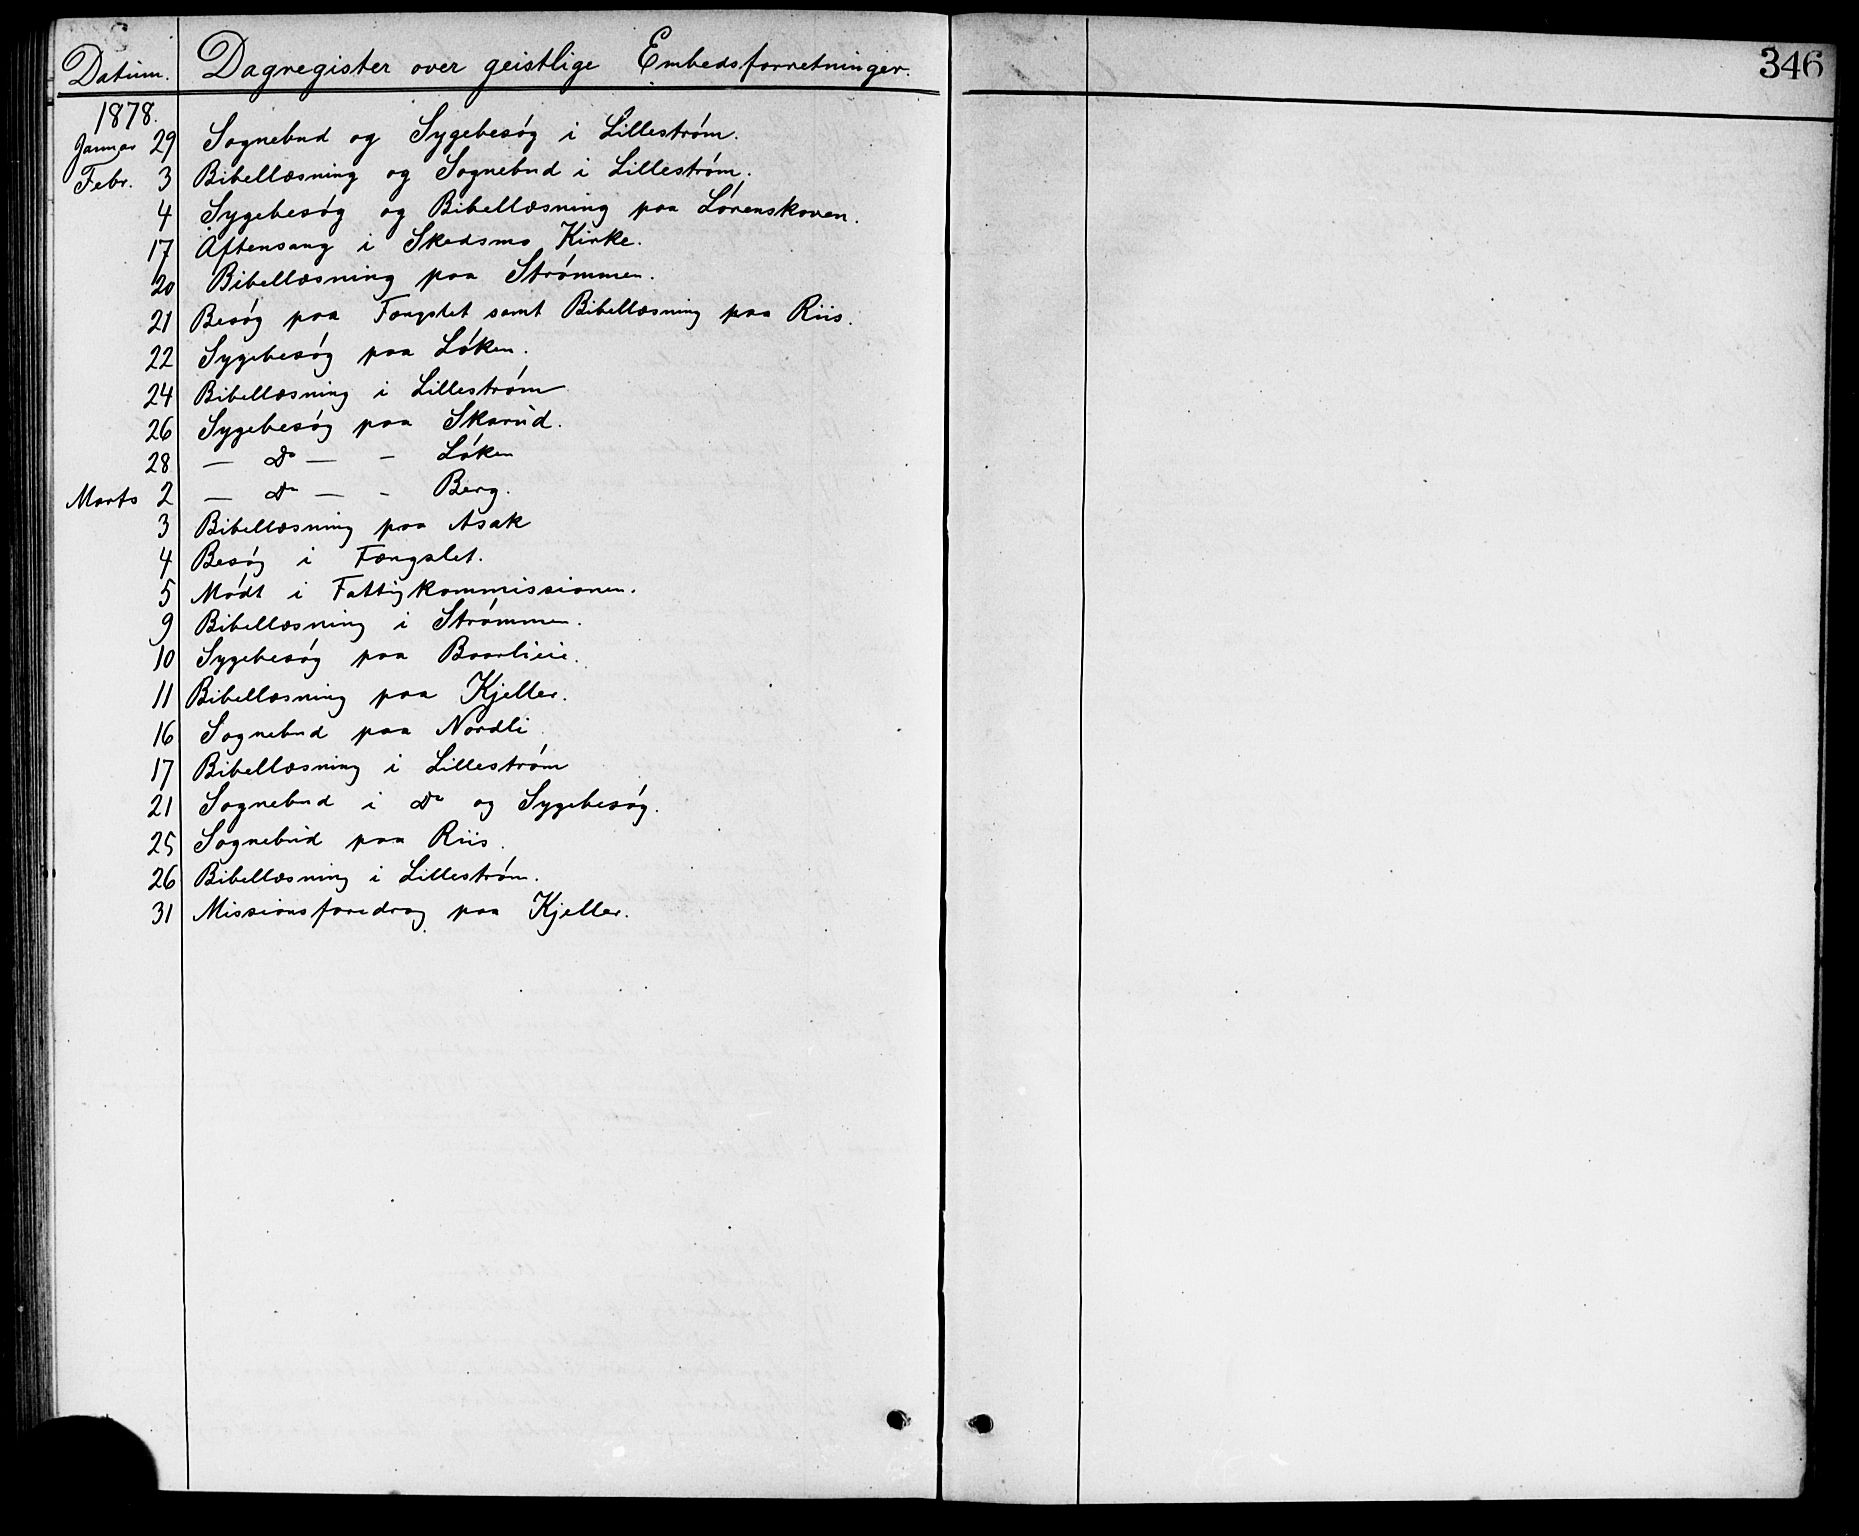 Datum. Dagregister over geistlige Embedsforretninger. 346
1878.
Januar 29 Sognebud og Sygebesög i Lilleström.
Febr. 3 Bibellæsning og Sognebud i Lilleström.
4 Sygebesög og Bibellæsning paa Lörenskoven.
17 Aftensang i Skedsmo Kirke.
20 Bibellæsning paa Strömmen.
21 Besög paa Fængslet samt Bibellæsning paa Riis.
22 Sygebesög paa Löken.
24 Bibellæsning i Lilleström
26 Sygebesög paa Skarud.
28 — Do — - Löken
Marts 2 — Do — - Berg.
3 Bibellæsning paa Asak
4 Besög i Fængslet.
5 Mödt i Fattigkommissionen.
9 Bibellæsning i Strömmen.
10 Sygebesög paa
11 Bibellæsning paa Kjeller.
16 Sognebud paa Nordli
17 Bibellæsning i Lilleström
21 Sognebud i Do og Sygebesög.
25 Sognebud paa Riis.
26 Bibellæsning i Lilleström.
31 Missionsforedrag paa Kjeller.